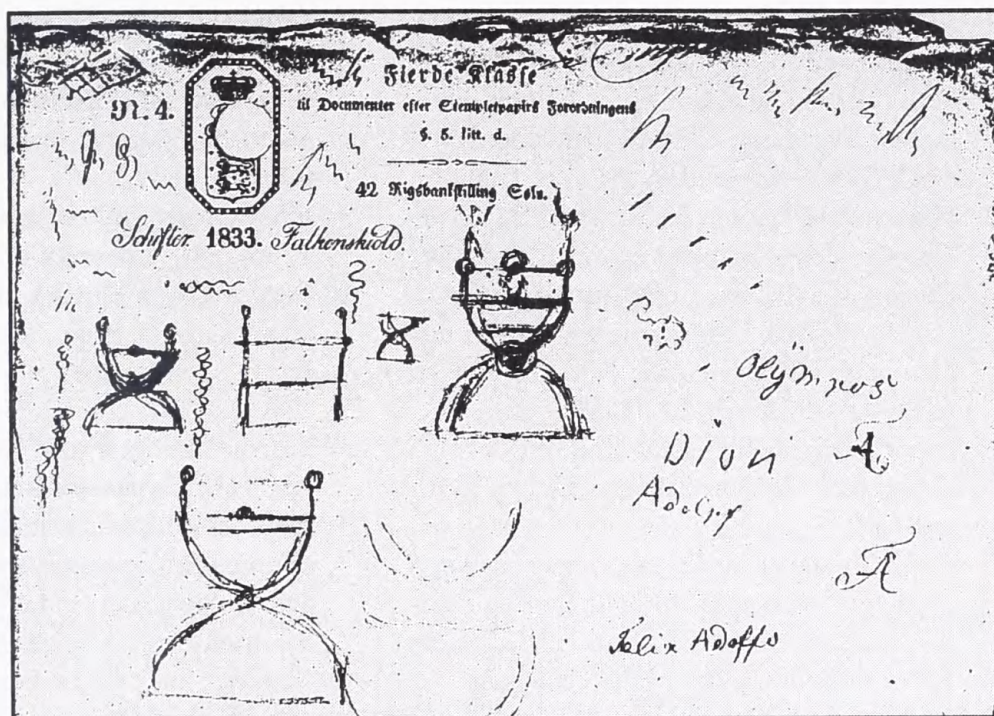 Fierde Klasse
N. 4.
til Documenter efter Stempletpapirs Forordningens
§. 5. litt. d.
42 Rigsbankskilling Sølv.
Schifter 1833. Falkenskiold.
Olÿmpos
Dion
A
Adolpf
A
Felix Adolffo